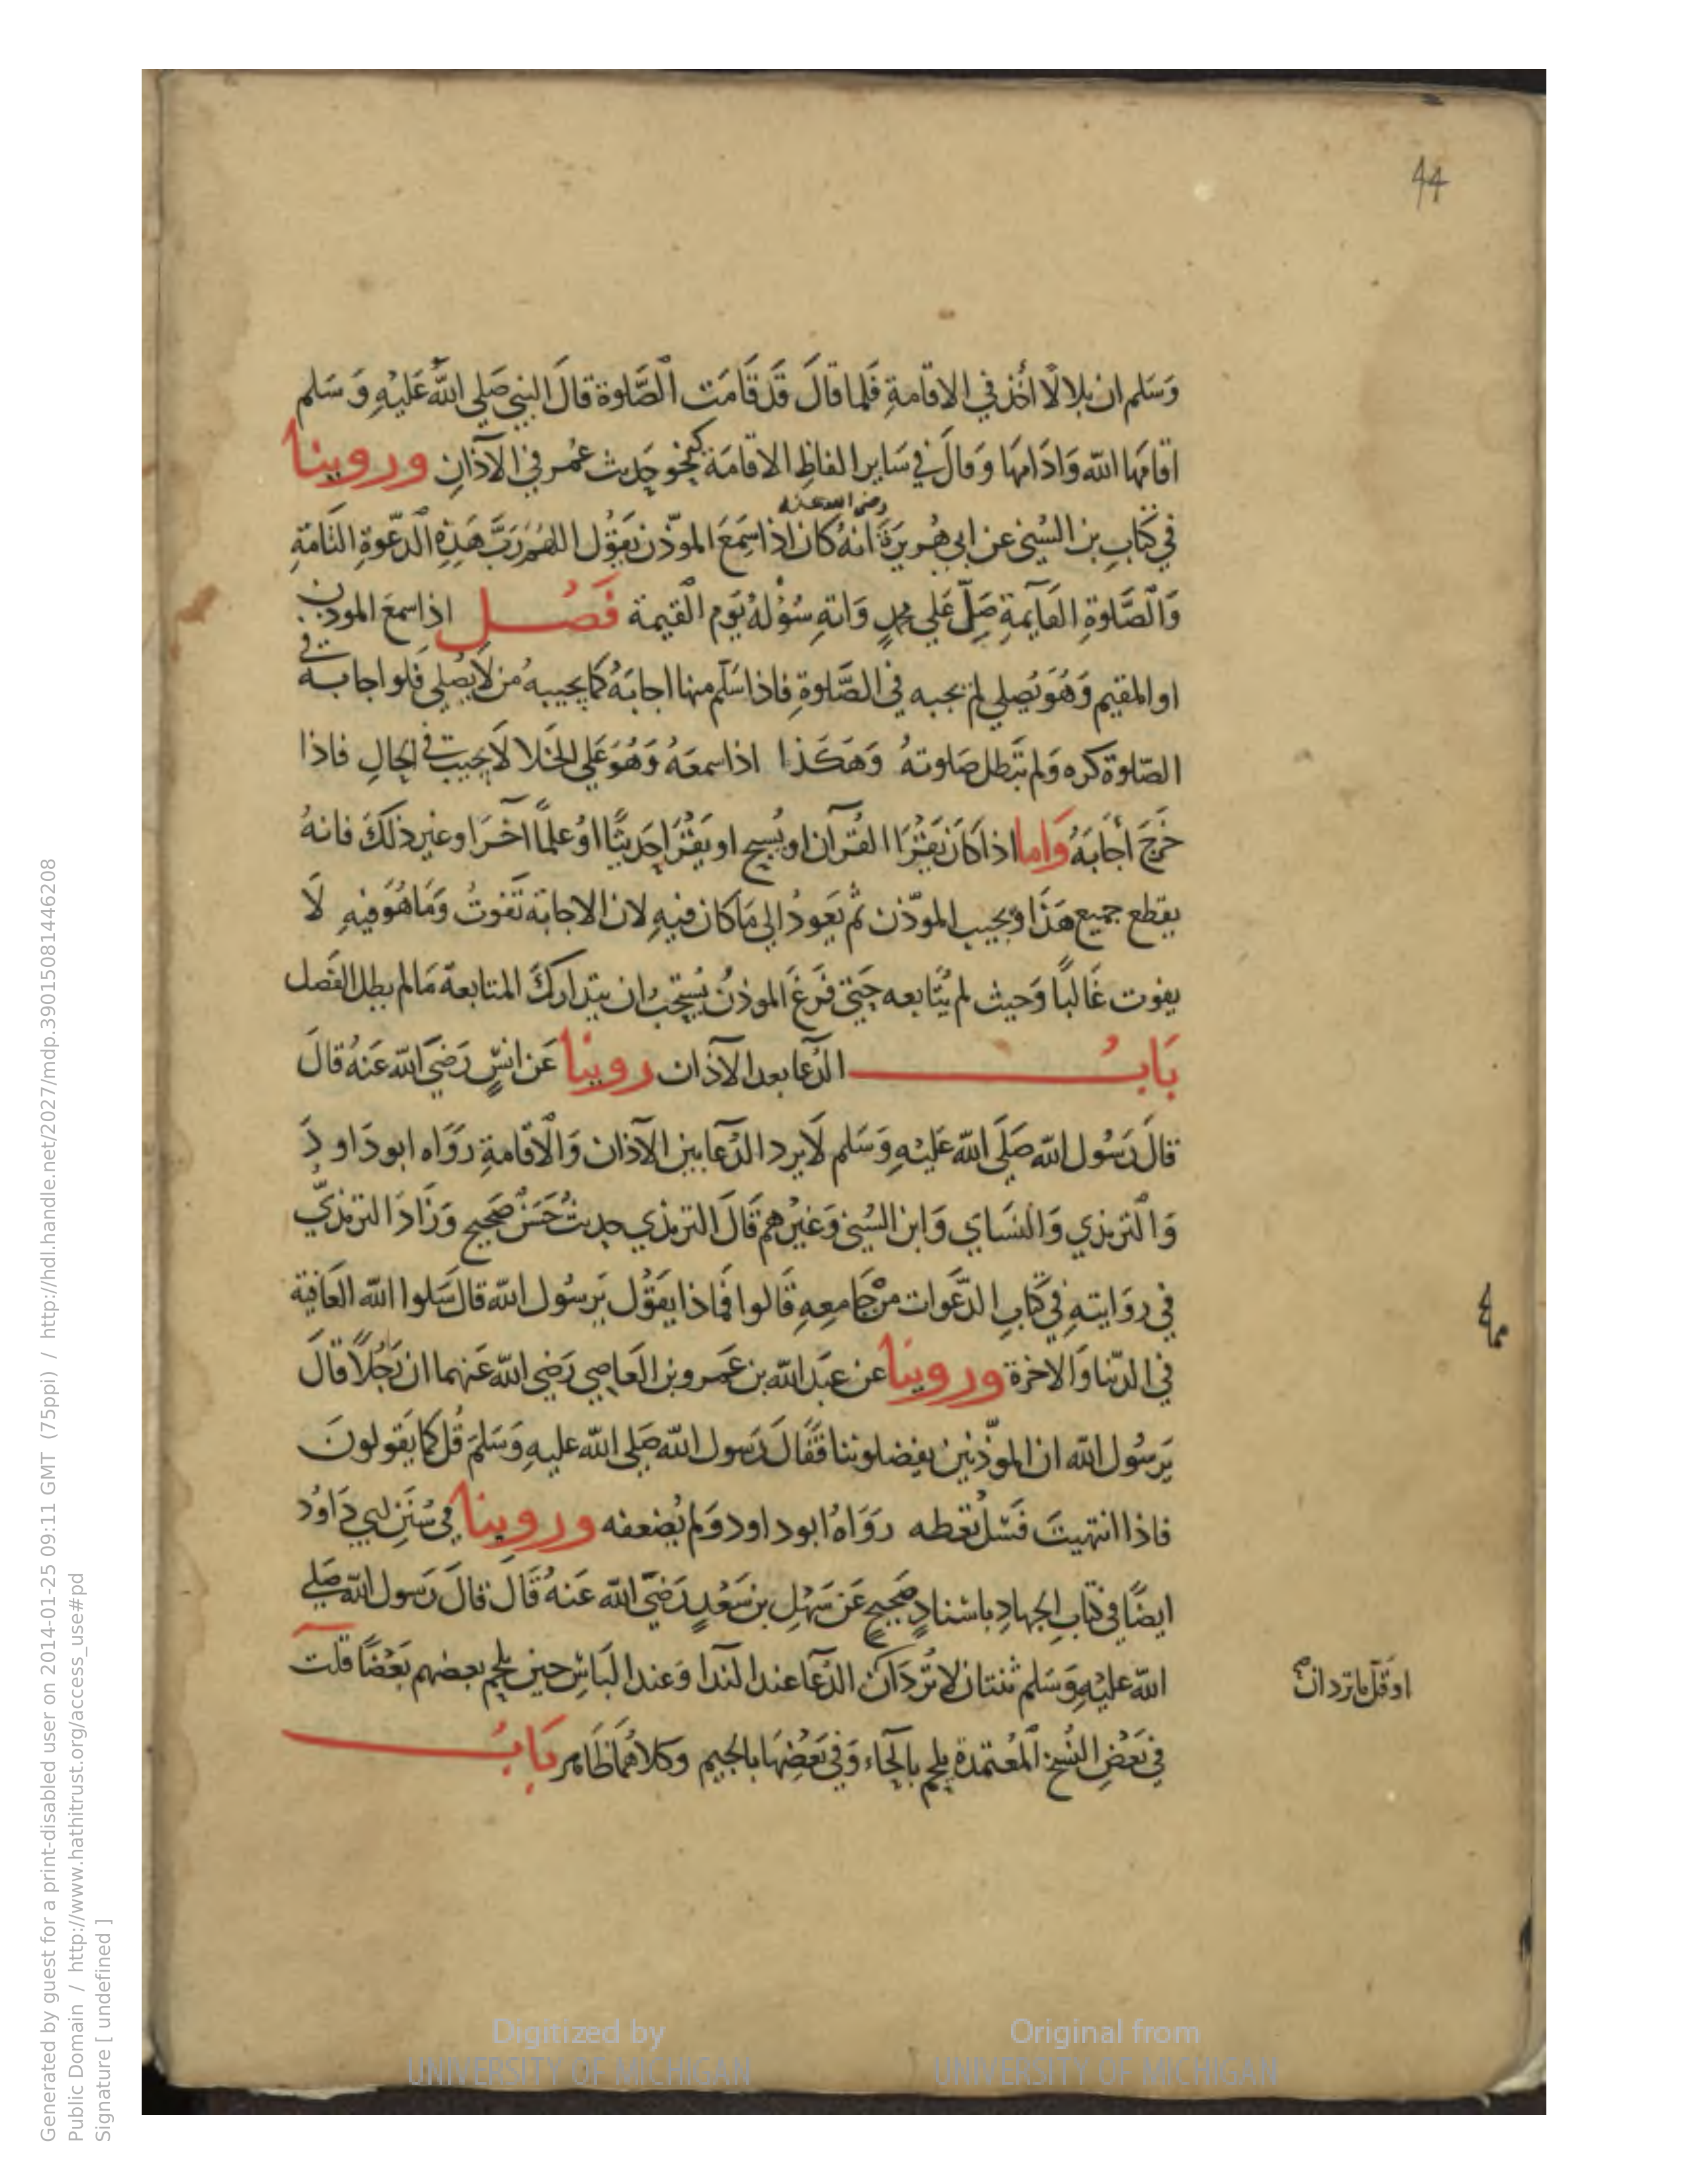 44
وَسَلم ان بلالًا أخذ في الاقامةِ فَلما قالَ قَد قَامَت الصَّلوة قالَ النبي صَلي اللهُ عَليْهِ وَسَلم
اقامَها الله وَادَامها وَقالَ في سَاير الفاظِ الاقامَة كنحو حَدِيث عُمر في الآذانِ وروينا
رضي الله عنه
في كتابِ بن السُني عن ابي هُريرَةَ انهُ كان اذا سَمِعَ الموذّن يَقوُل اللهُمَّ رَبَّ هَذِهِ الدّعوة التَامّةِ
وَالصَّلوةِ القَآيمةِ صَلِّ عَلي محمدٍ وَاتهِ سُؤْلهُ يَوم القيمة فَصْل اذا سمعَ الموذن
او المقيم وَهُوَ يُصلي لم يجبه في الصَّلوةِ فاذا سَلّم منها اجابَهُ كما يجيبه مُن لا يُصلي فلو اجابه في
الصّلوة كره وَلم تَبطل صَلوتهُ وَهكَذا اذا سمعَهُ وَهُوَ عَلي الخلا لَا يجيب في الحالِ فاذا
خَرجَ أجَابَهُ وَاما اذا كانَ يَقرَا القُرآن او يُسبح او يَقرَا حَديثًا اوْ علمًا آخرَ او غير ذلكَ فانهُ
يقطع جميع هَذا وَيجيب الموذّن ثم يَعودُ الي مَا كان فيهِ لان الاجابة تَفوتُ وَمَا هُوَ فيهِ لَا
يفوت غَالبًا وَحيث لم يُتابعه حَتي فَرغَ الموذنُ يُستحَبُ ان يتداركَ المتابعة مَا لم يطل الفَصل
بَابُ الدُعا بعد الآذان روينا عَن انسٍ رَضيَ الله عَنهُ قالَ
قالَ رَسُول الله صَلَي الله عَليْهِ وَسَلم لَا يرد الدُعا بين الآذان وَالاقامةِ رَوَاه ابو دَاودَ
وَالترمذي وَالنسَاي وَابن السُني وَغيرُهم قَالَ الترمذي حديثٌ حَسَنٌ صَحيح وَزادَ الترمذيّ
في روَايتهِ في كتابِ الدّعَوات مِنْ جَامعهِ قَالوا فَماذا يَقوُل يَرسُول الله قالَ سَلوا الله العَافية
في الدّنيا وَالاخرة وروينا عن عبَدالله بن عَمرو بن العَاصِي رَضي الله عَنهما ان رَجُلًا قالَ
يَرسُول الله ان الموذّنين يفضلوننا فقَالَ رَسول الله صَلي الله عليهِ وَسَلم قُل كما يَقولونَ
فاذا انتهيتَ فسَل تعُطه رَوَاهُ ابو داود وَلم يُضعفه وروينا في سُنن ابي دَاوُد
ايضًا في كتابِ الجهادِ باسنادٍ صَحيحٍ عَن سَهْل بن سَعْدٍ رَضيَ الله عَنهُ قَالَ قالَ رَسول الله صَلي
الله عليْهِ وَسَلم ثنتان لا تُردَان الدُعَا عند الندا وَعند البَاس حين يلحم بعضهم بَعْضًا قلت
او قل ما تردان
في بَعْضِ النُسخ المعْتمدة يلحم بالحَاء وَفي بَعْضِهَا بالجيم وكلاهُما ظَاهر بَابُ